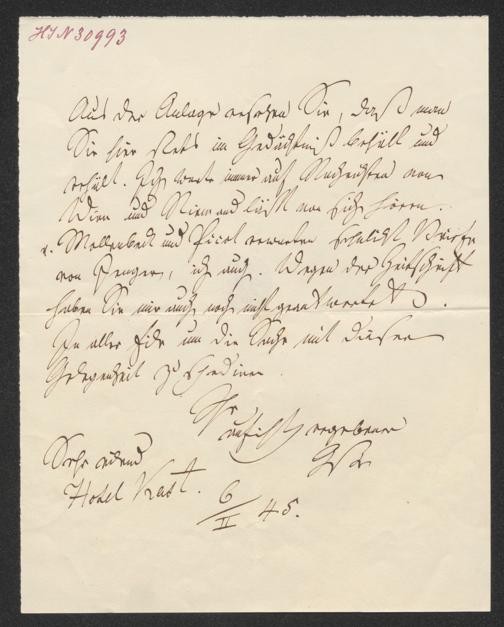 HIN 30993
Aus der Anlage ersehen Sie, daß man
Sie hier stets im Gedächtniß behält und
erhält. Ich warte immer auf Nachrichten von
Wien und Niemand läßt von sich hören.
v. Mellenbedt und Picot erwarten Briefe
von Ihnen, ich auch. Wegen der Zeitschrift
haben Sie mir auch noch nicht geantwortet.
In aller Eile um die Sache mit dieser
Gelegenheit zu
Ihr
aufrichtig ergebener
Hotel
6/II 45.